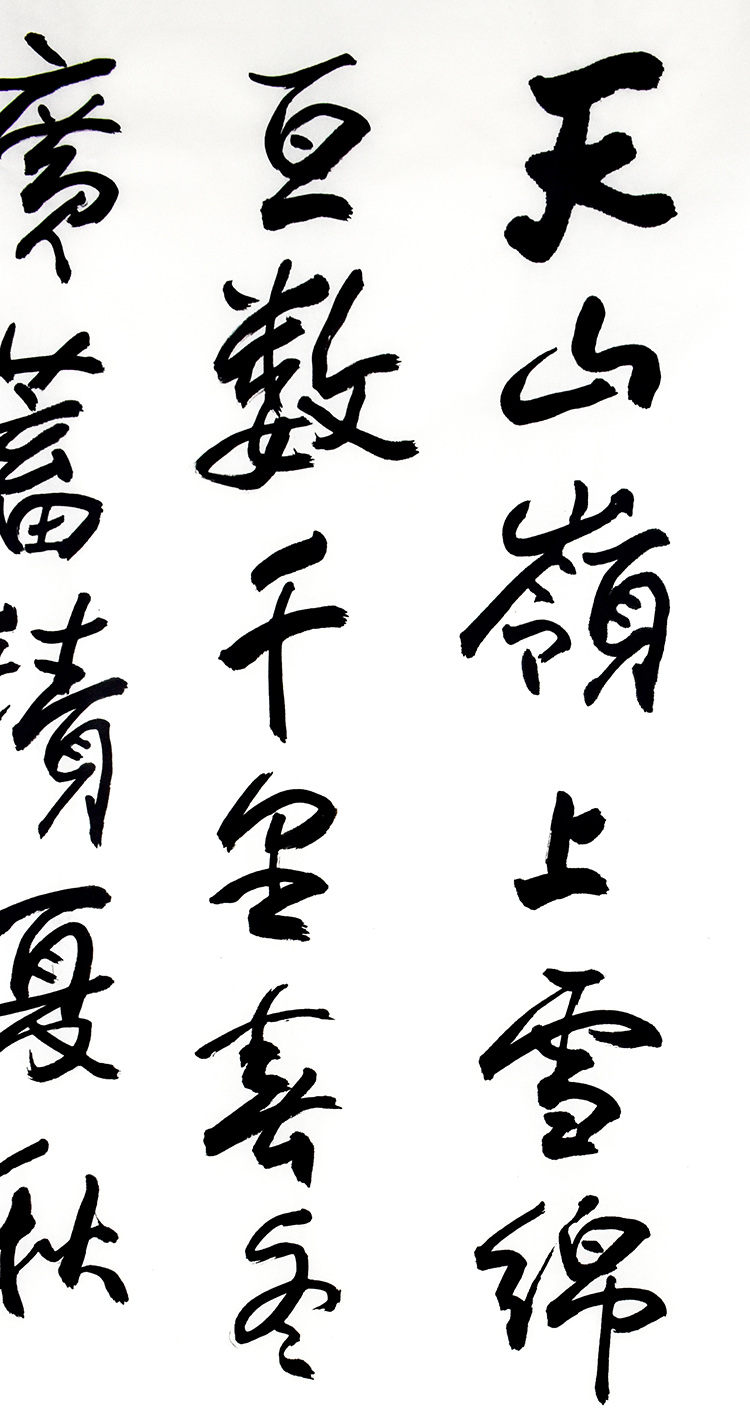 天山嶺上雪綿
亘数千里春冬
廣蓄積夏秋